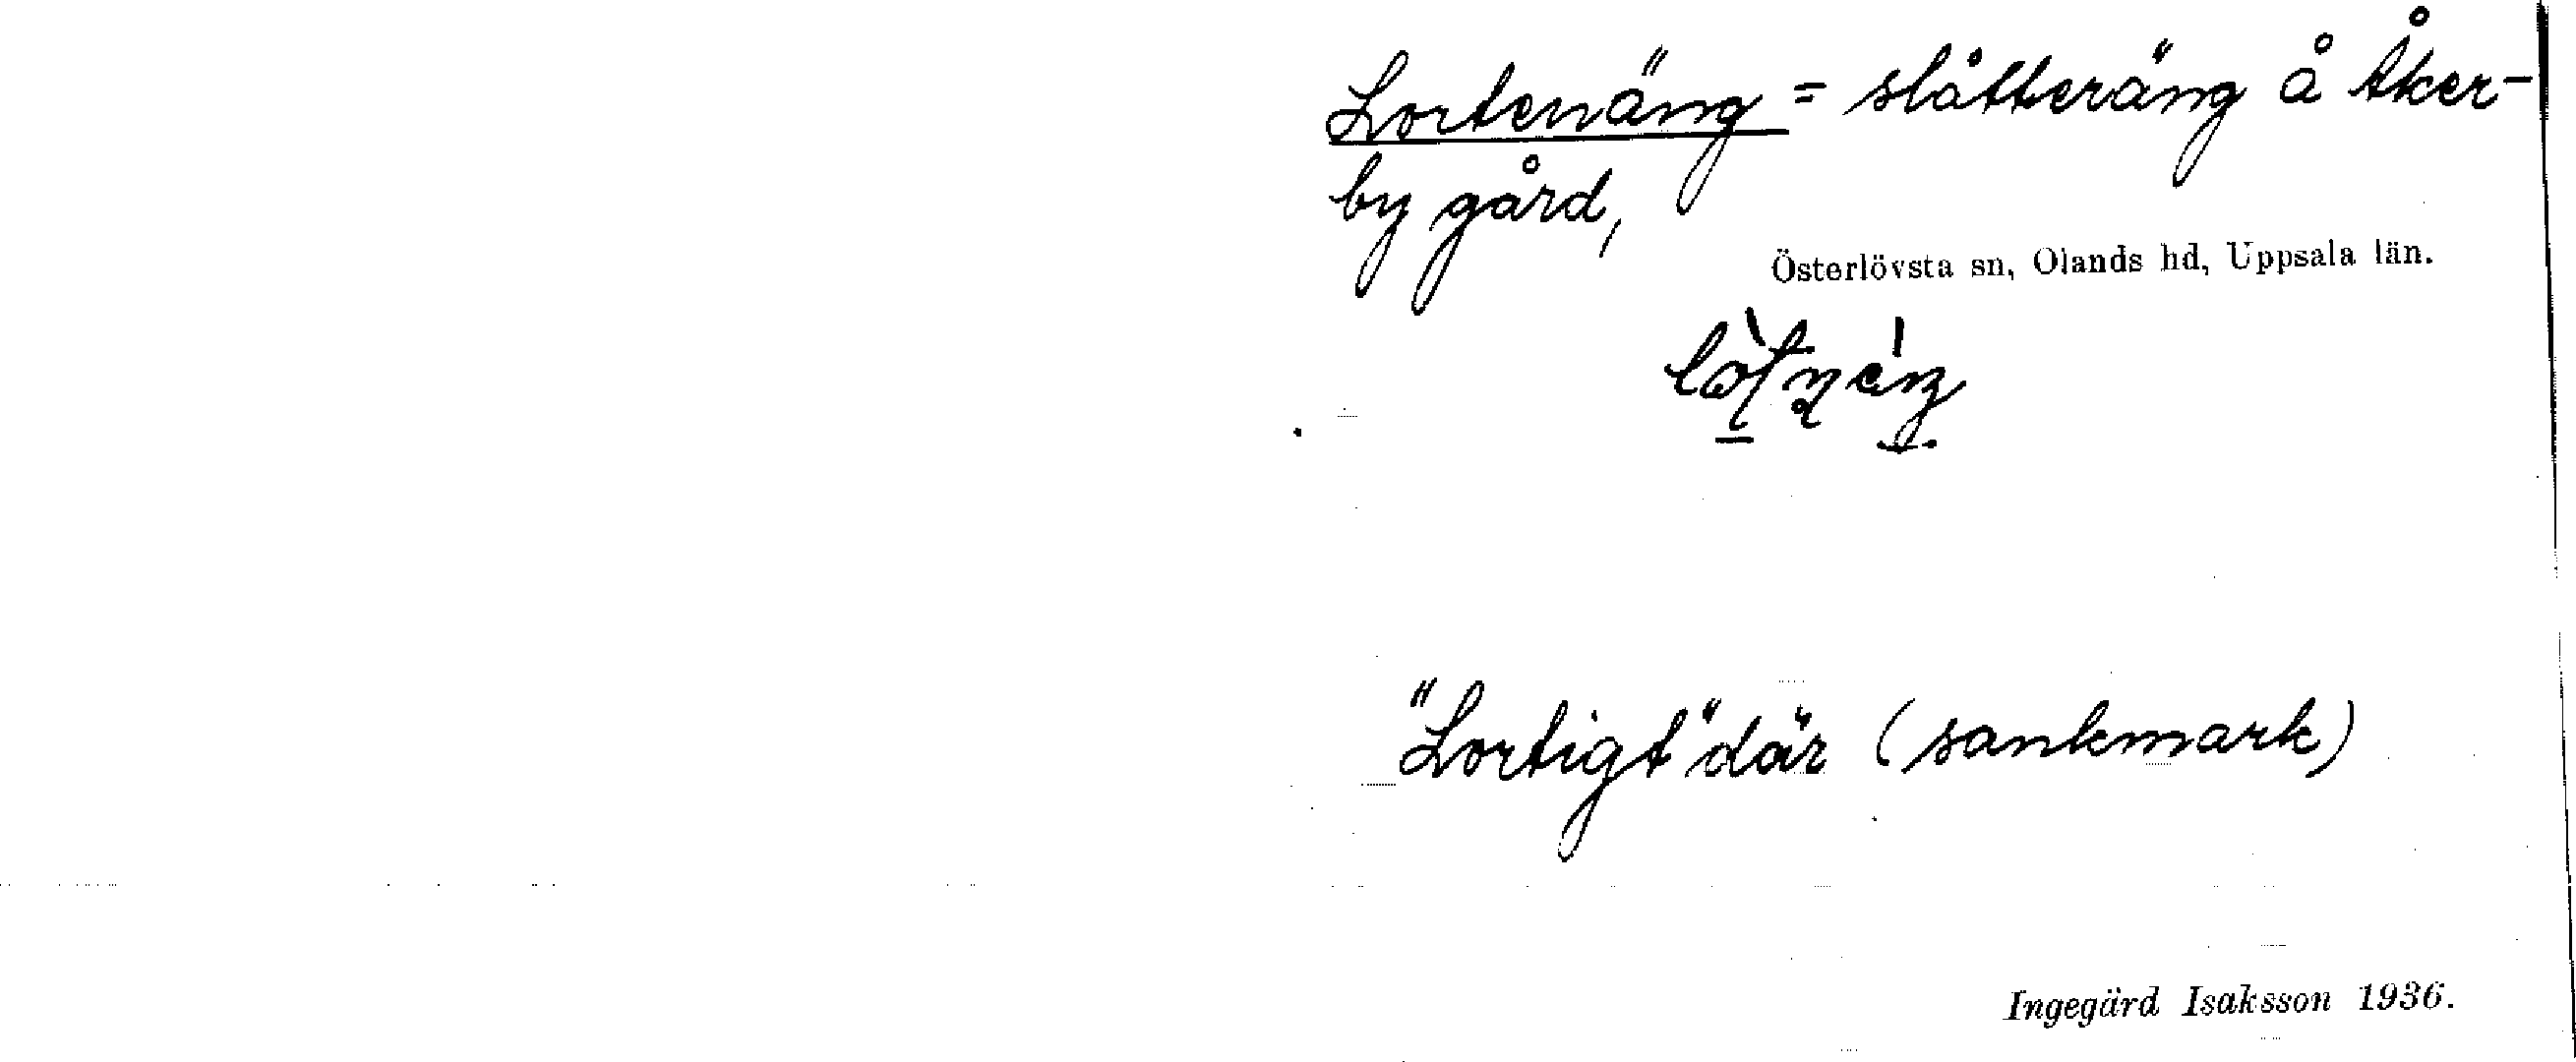 Lortenäng = slåtteräng å Åker-
by gård,
Österlövsta sn, Olands hd, Uppsala län.
"Lortigt" där (sankmark)
Ingegärd Isaksson 1936.